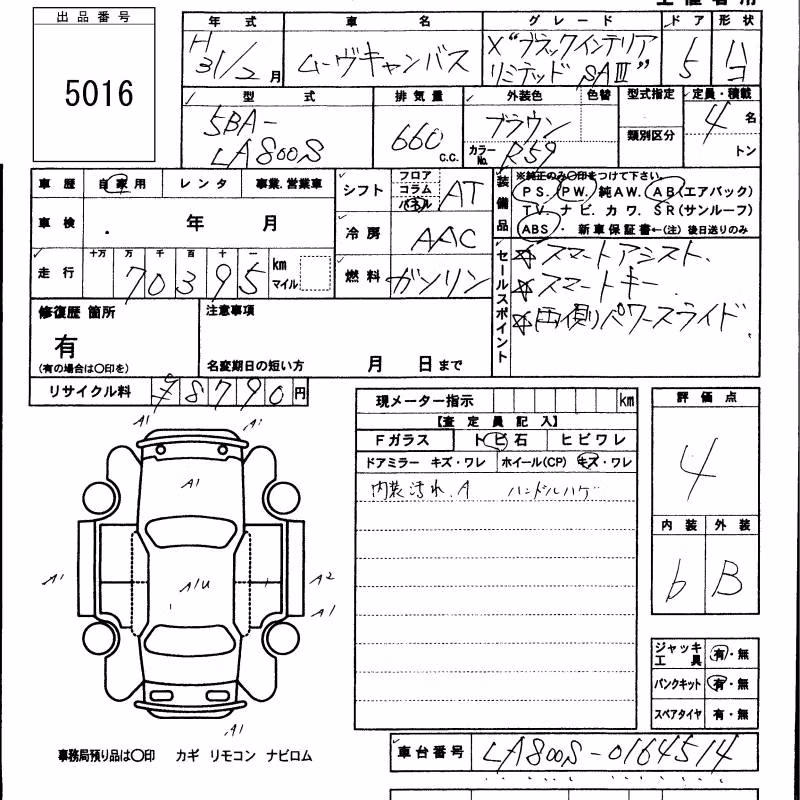 出品番号
5016
年式 車名 グレード ドア 形状
H31/2月 ムーヴキャンバス X“ブラックインテリアリミテッド SAⅢ” 5 ハコ
型式 排気量 外装色 色替 型式指定 定員・積載
5BA-LA800S 660 C.C. ブラウン 類別区分 4名
カラーNo. R59 トン
車歴 自家用 レンタ 事業.営業車
シフト フロア コラム パネル AT
車検 . 年 月
冷房 AAC
走行 十万 万 千 百 十 一
70395 km マイル
燃料 ガソリン
装備品 ※純正のみ○印をつけて下さい。
PS. PW. 純AW. AB(エアバック)
TV. ナビ. カワ. SR(サンルーフ)
ABS. 新車保証書←(注) 後日送りのみ
セールスポイント
☆スマートアシスト.
☆スマートキー.
☆両側パワースライド
修復歴 箇所
有
(有の場合は○印を)
注意事項
名変期日の短い方 月 日まで
リサイクル料 ¥8790円
現メーター指示 km
【査定員記入】
Fガラス トビ石 ヒビワレ
ドアミラー キズ・ワレ ホイール(CP) キズ・ワレ
内装汚れ.A ハンドルハゲ
評価点
4
内装 外装
b B
A1 A1
A1
A1 A1U A2
A1
A1
ジャッキ工具 有・無
パンクキット 有・無
スペアタイヤ 有・無
事務局預り品は○印 カギ リモコン ナビロム
車台番号 LA800S-0164514